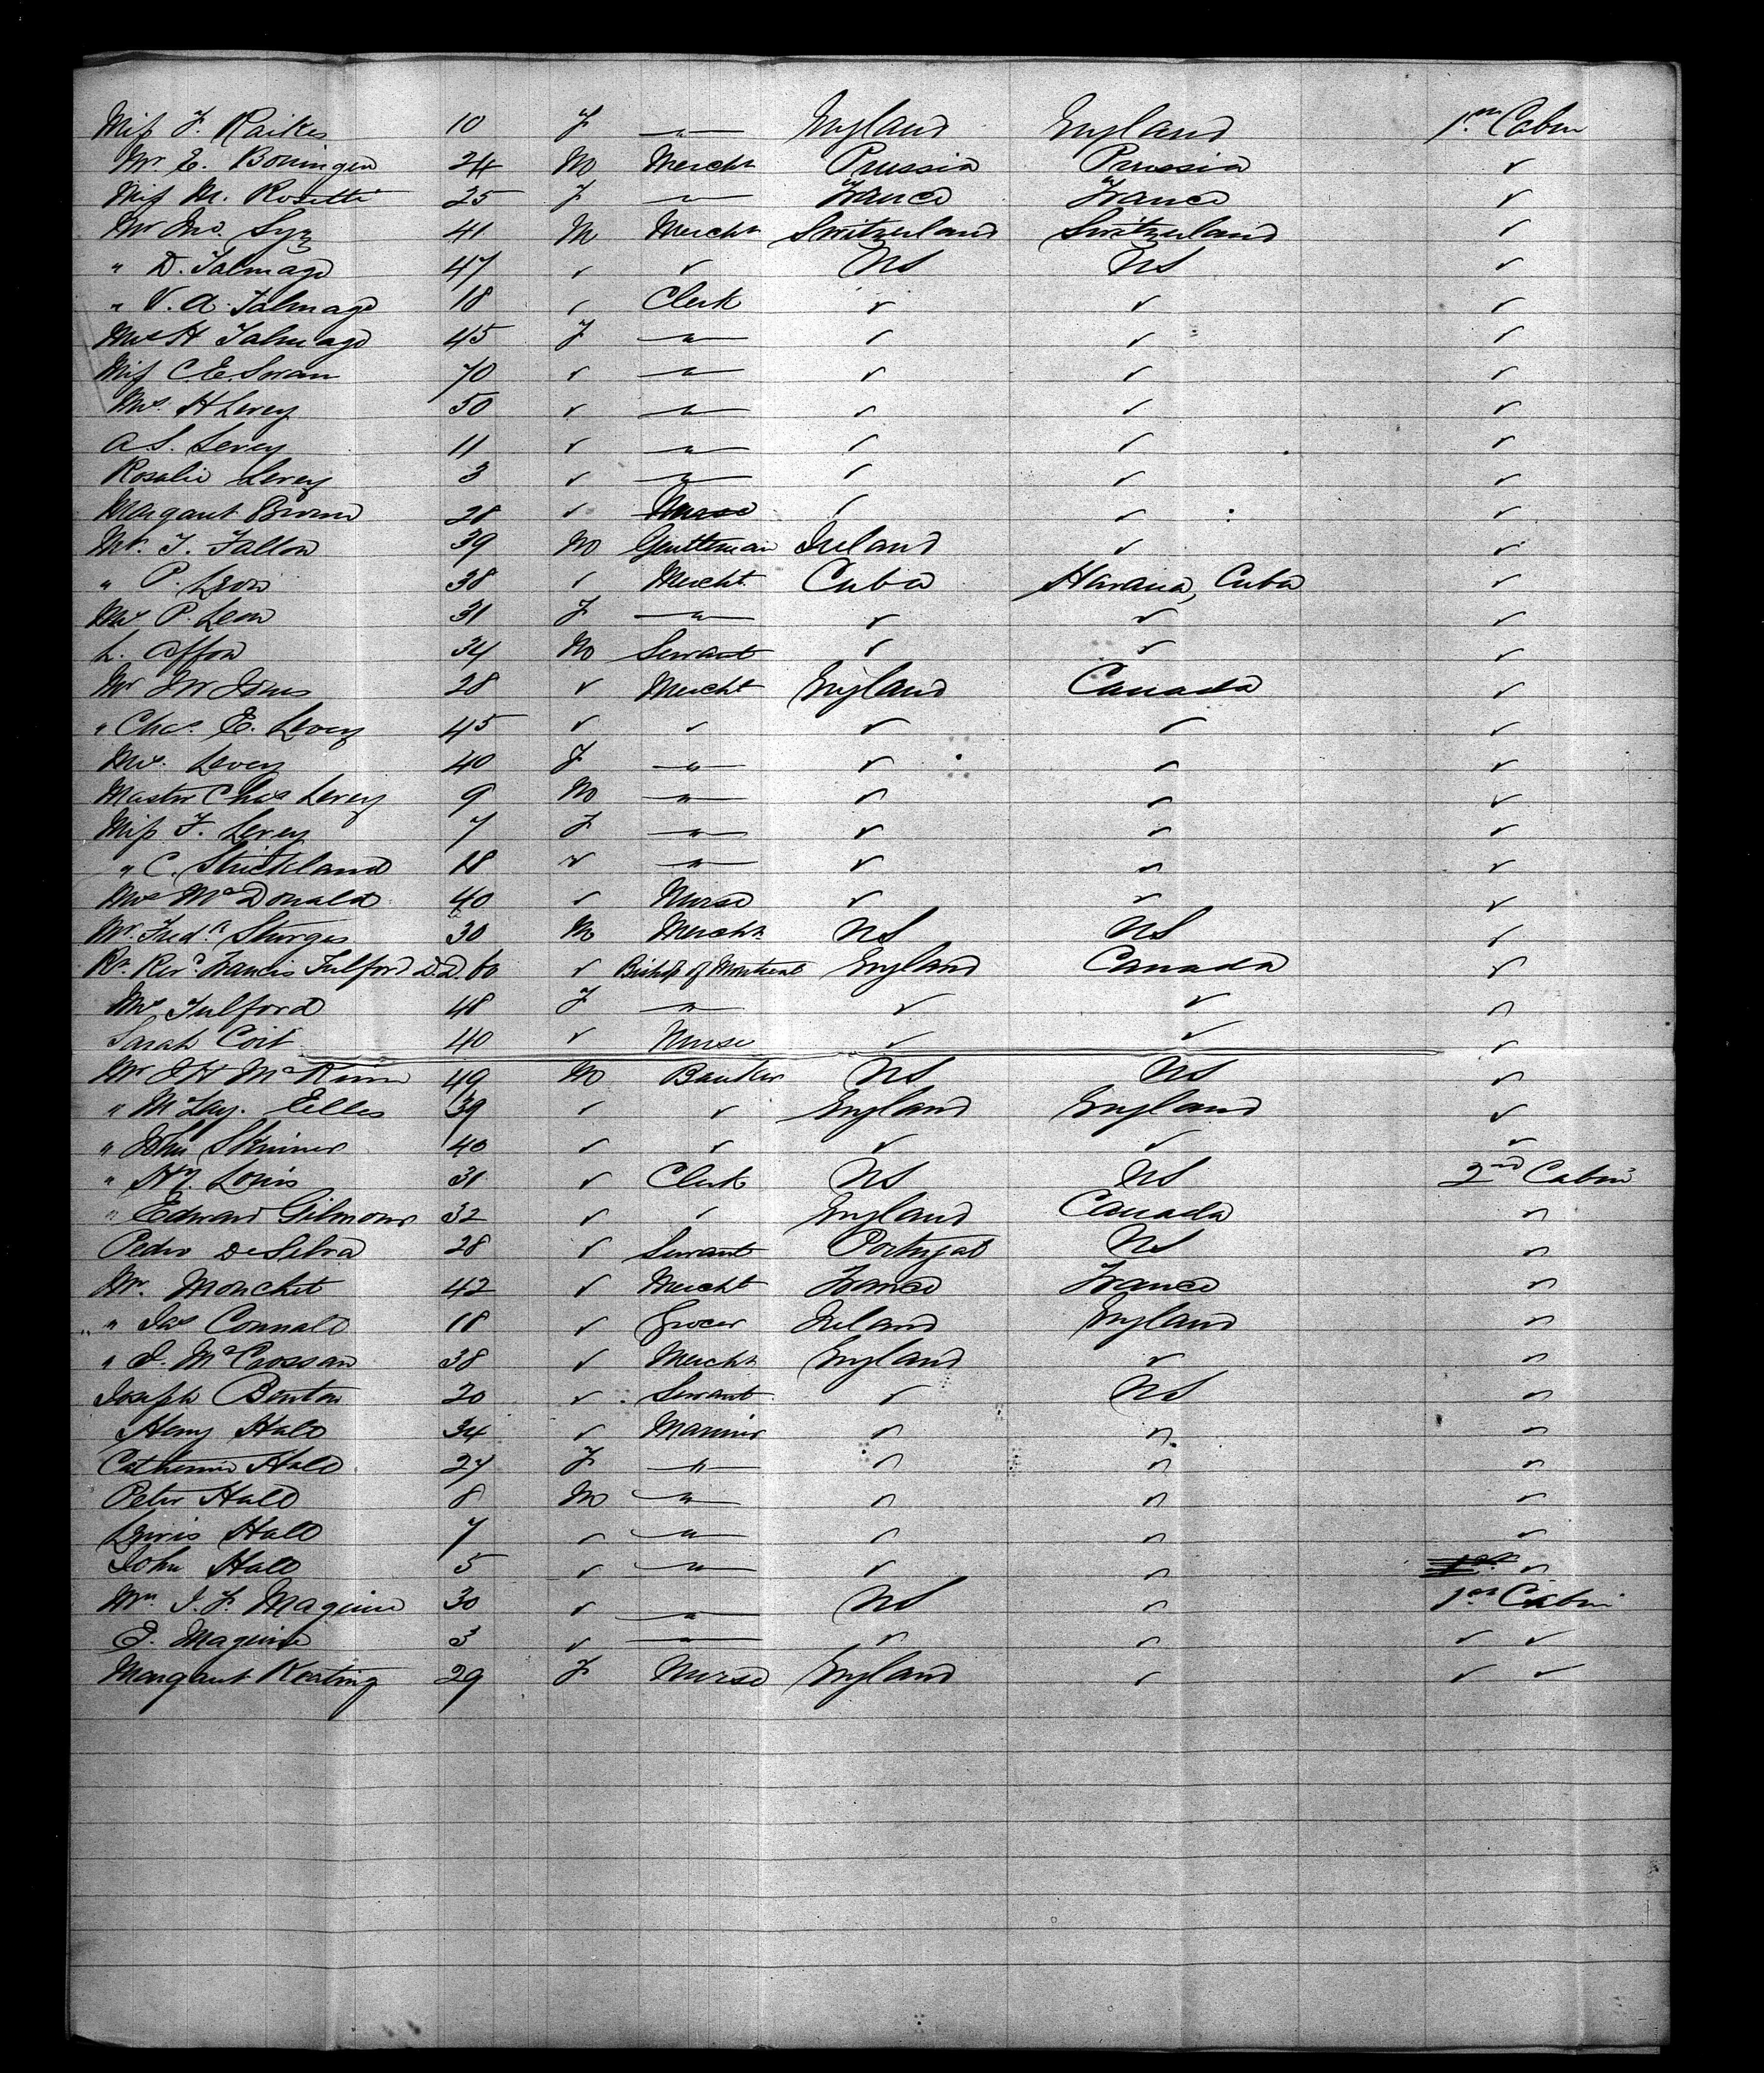 Miss F. Raikes 10 F — " — England England 1st Cabin
Mr. E. Boningen 24 M Mercht Prussia Prussia ✓
Miss M. Rosetti 25 F — " — France France ✓
Mr Jno. Syz 41 M Mercht Switzerland Switzerland ✓
" D. Talmage 47 ✓ ✓ US US ✓
" V. A. Talmage 18 ✓ Clerk ✓ ✓ ✓
Mrs H Talmage 45 F — " — ✓ ✓ ✓
Miss C. E. Swan 70 ✓ — " — ✓ ✓ ✓
Mrs. H Levey 50 ✓ — " — ✓ ✓ ✓
A S. Levey 11 ✓ — " — ✓ ✓ ✓
Rosalie Levey 3 ✓ — " — ✓ ✓ ✓
Margaret Brown 28 ✓ Nurse ✓ ✓ ✓
Mr. T. Fallon 39 M Gentleman Ireland ✓ ✓
" P. Leon 38 ✓ Mercht. Cuba Havana, Cuba ✓
Mrs P. Leon 31 F — " — ✓ ✓ ✓
L. Affon 34 M Servant ✓ ✓ ✓
Mr 28 ✓ Mercht England Canada ✓
" Chas. E. Levey 45 ✓ ✓ ✓ ✓ ✓
Mrs. Levey 40 F — " — ✓ ✓ ✓
Master Chas Levey 9 M — " — ✓ ✓ ✓
Miss F. Levey 7 F — " — ✓ ✓ ✓
" C. Strickland 18 ✓ — " — ✓ ✓ ✓
Mrs McDonald 40 ✓ Nurse ✓ ✓ ✓
Mr. Fredk. Sturges 30 M Mercht US US ✓
Rt. Revd Francis Fulford D.D. 60 ✓ Bishop of Montreal England Canada ✓
Mrs Fulford 48 F — " — ✓ ✓ ✓
Sarah Coit 40 ✓ Nurse ✓ ✓ ✓
Mr J H McKinn 49 M Banker US US ✓
" Eelles 39 ✓ ✓ England England ✓
" John Skinner 40 ✓ ✓ ✓ ✓ ✓
" Hy. Louis 31 ✓ Clerk US US 2nd Cabin
" Edward Gilmour 32 ✓ ✓ England Canada ✓
Pedro De Silva 28 ✓ Servant Portugal US ✓
Mr. Monchet 42 ✓ Mercht France France ✓
" Jas Connall 18 ✓ Grocer Ireland England ✓
" J. McCrossan 38 ✓ Mercht England ✓ ✓
Joseph Benton 20 ✓ Servant ✓ US ✓
Henry Hall 34 ✓ Mariner ✓ ✓ ✓
Catherine Hall 27 F — " — ✓ ✓ ✓
Peter Hall 8 M — " — ✓ ✓ ✓
Lewis Hall 7 ✓ — " — ✓ ✓ ✓
John Hall 5 ✓ — " — ✓ ✓ ✓
J. F. Maguire 30 ✓ — " — US ✓ 1st Cabin
E. Maguire 3 ✓ — ✓ ✓ ✓ ✓
Margaret Keating 29 F Nurse England ✓ ✓ ✓